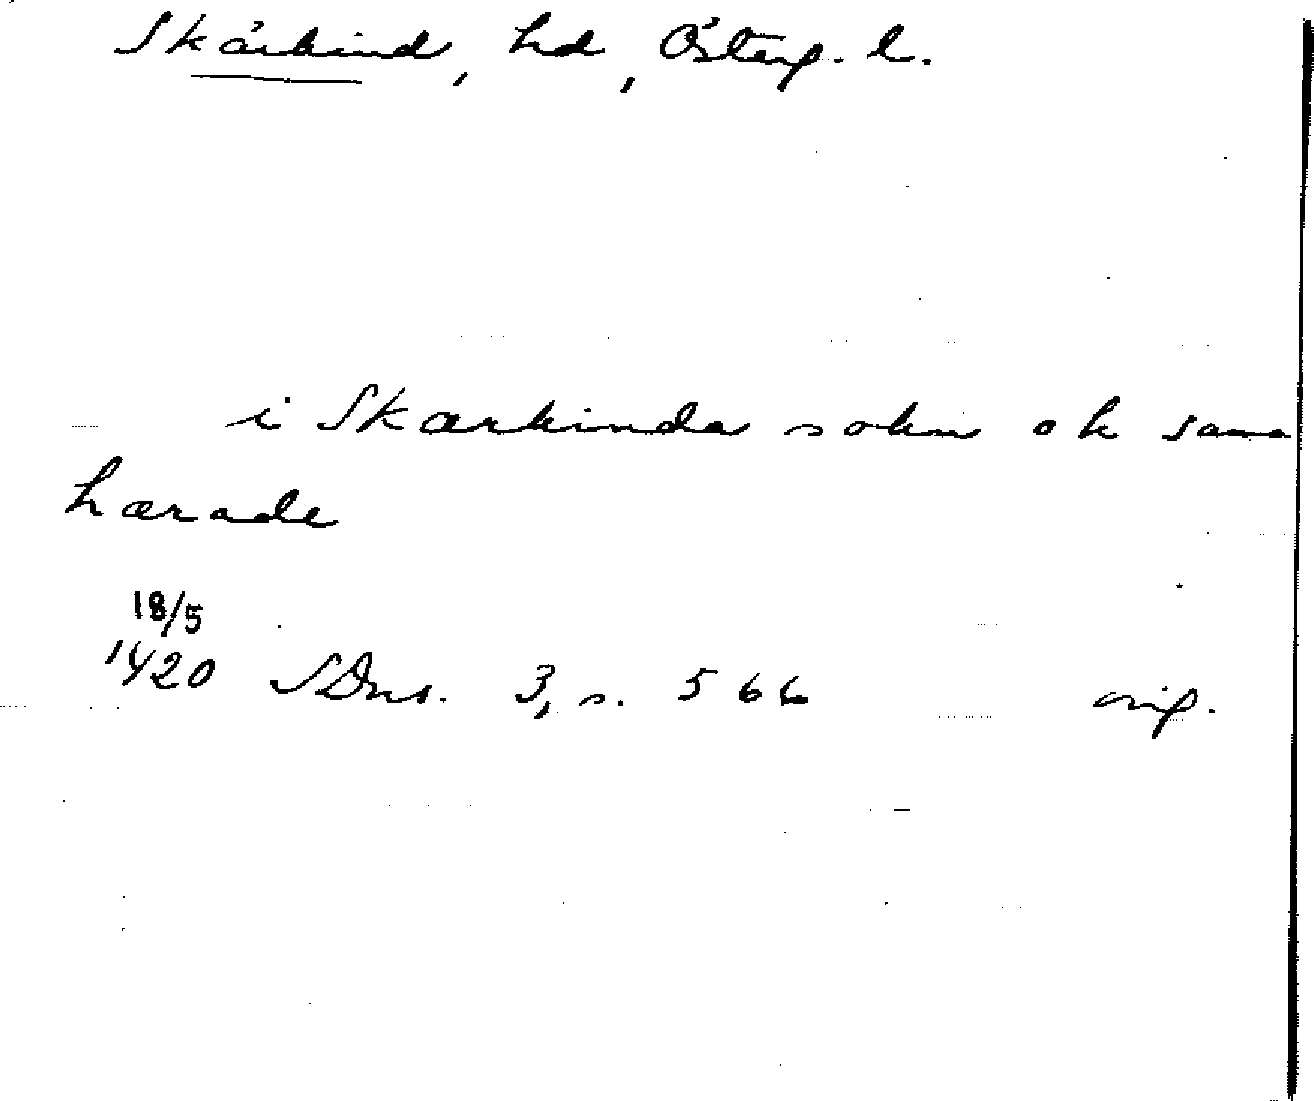 Skärkind, hd, Österg. l.
i Skærkinda sokn ok sama
hærade
18/5
1420 SDns. 3, s. 566 orig.